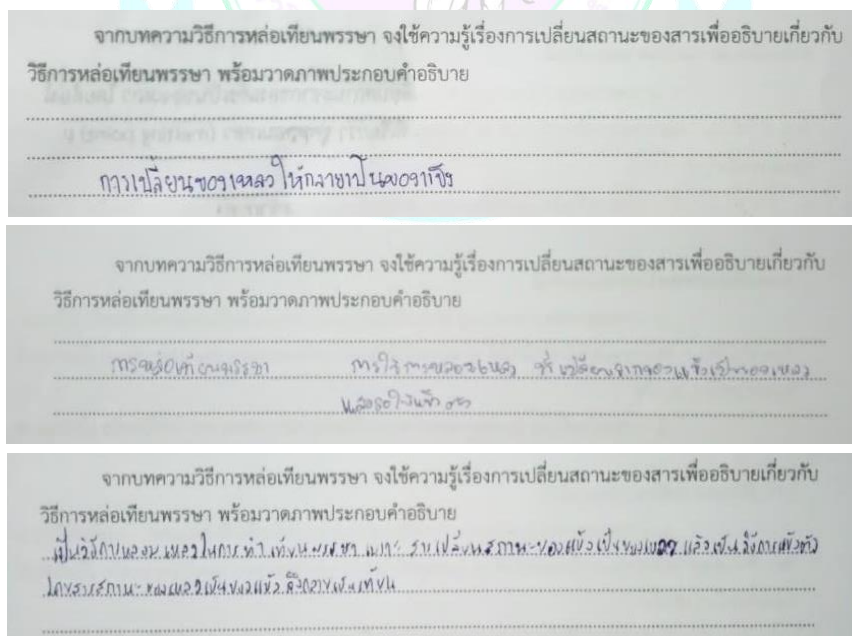 จากบทความวิธีการหล่อเทียนพรรษา จงใช้ความรู้เรื่องการเปลี่ยนสถานะของสารเพื่ออธิบายเกี่ยวกับ
วิธีการหล่อเทียนพรรษา พร้อมวาดภาพประกอบคำอธิบาย
การเปลี่ยนของเหลวให้กลายเป็นของแข็ง
จากบทความวิธีการหล่อเทียนพรรษา จงใช้ความรู้เรื่องการเปลี่ยนสถานะของสารเพื่ออธิบายเกี่ยวกับ
วิธีการหล่อเทียนพรรษา พร้อมวาดภาพประกอบคำอธิบาย
การหล่อเทียนพรรษา การใช้การหลอมเหลว ที่เปลี่ยนจากของแข็งเป็นของเหลว
และรอให้แข็งตัว
จากบทความวิธีการหล่อเทียนพรรษา จงใช้ความรู้เรื่องการเปลี่ยนสถานะของสารเพื่ออธิบายเกี่ยวกับ
วิธีการหล่อเทียนพรรษา พร้อมวาดภาพประกอบคำอธิบาย
เป็นวิธีการหลอมเหลวในการทำเทียนพรรษา เพราะ สารเปลี่ยนสถานะของแข็งเป็นของเหลว แล้วเป็นวิธีการแข็งตัว
สถานะของเหลวเป็นของแข็ง จึงกลายเป็นเทียน